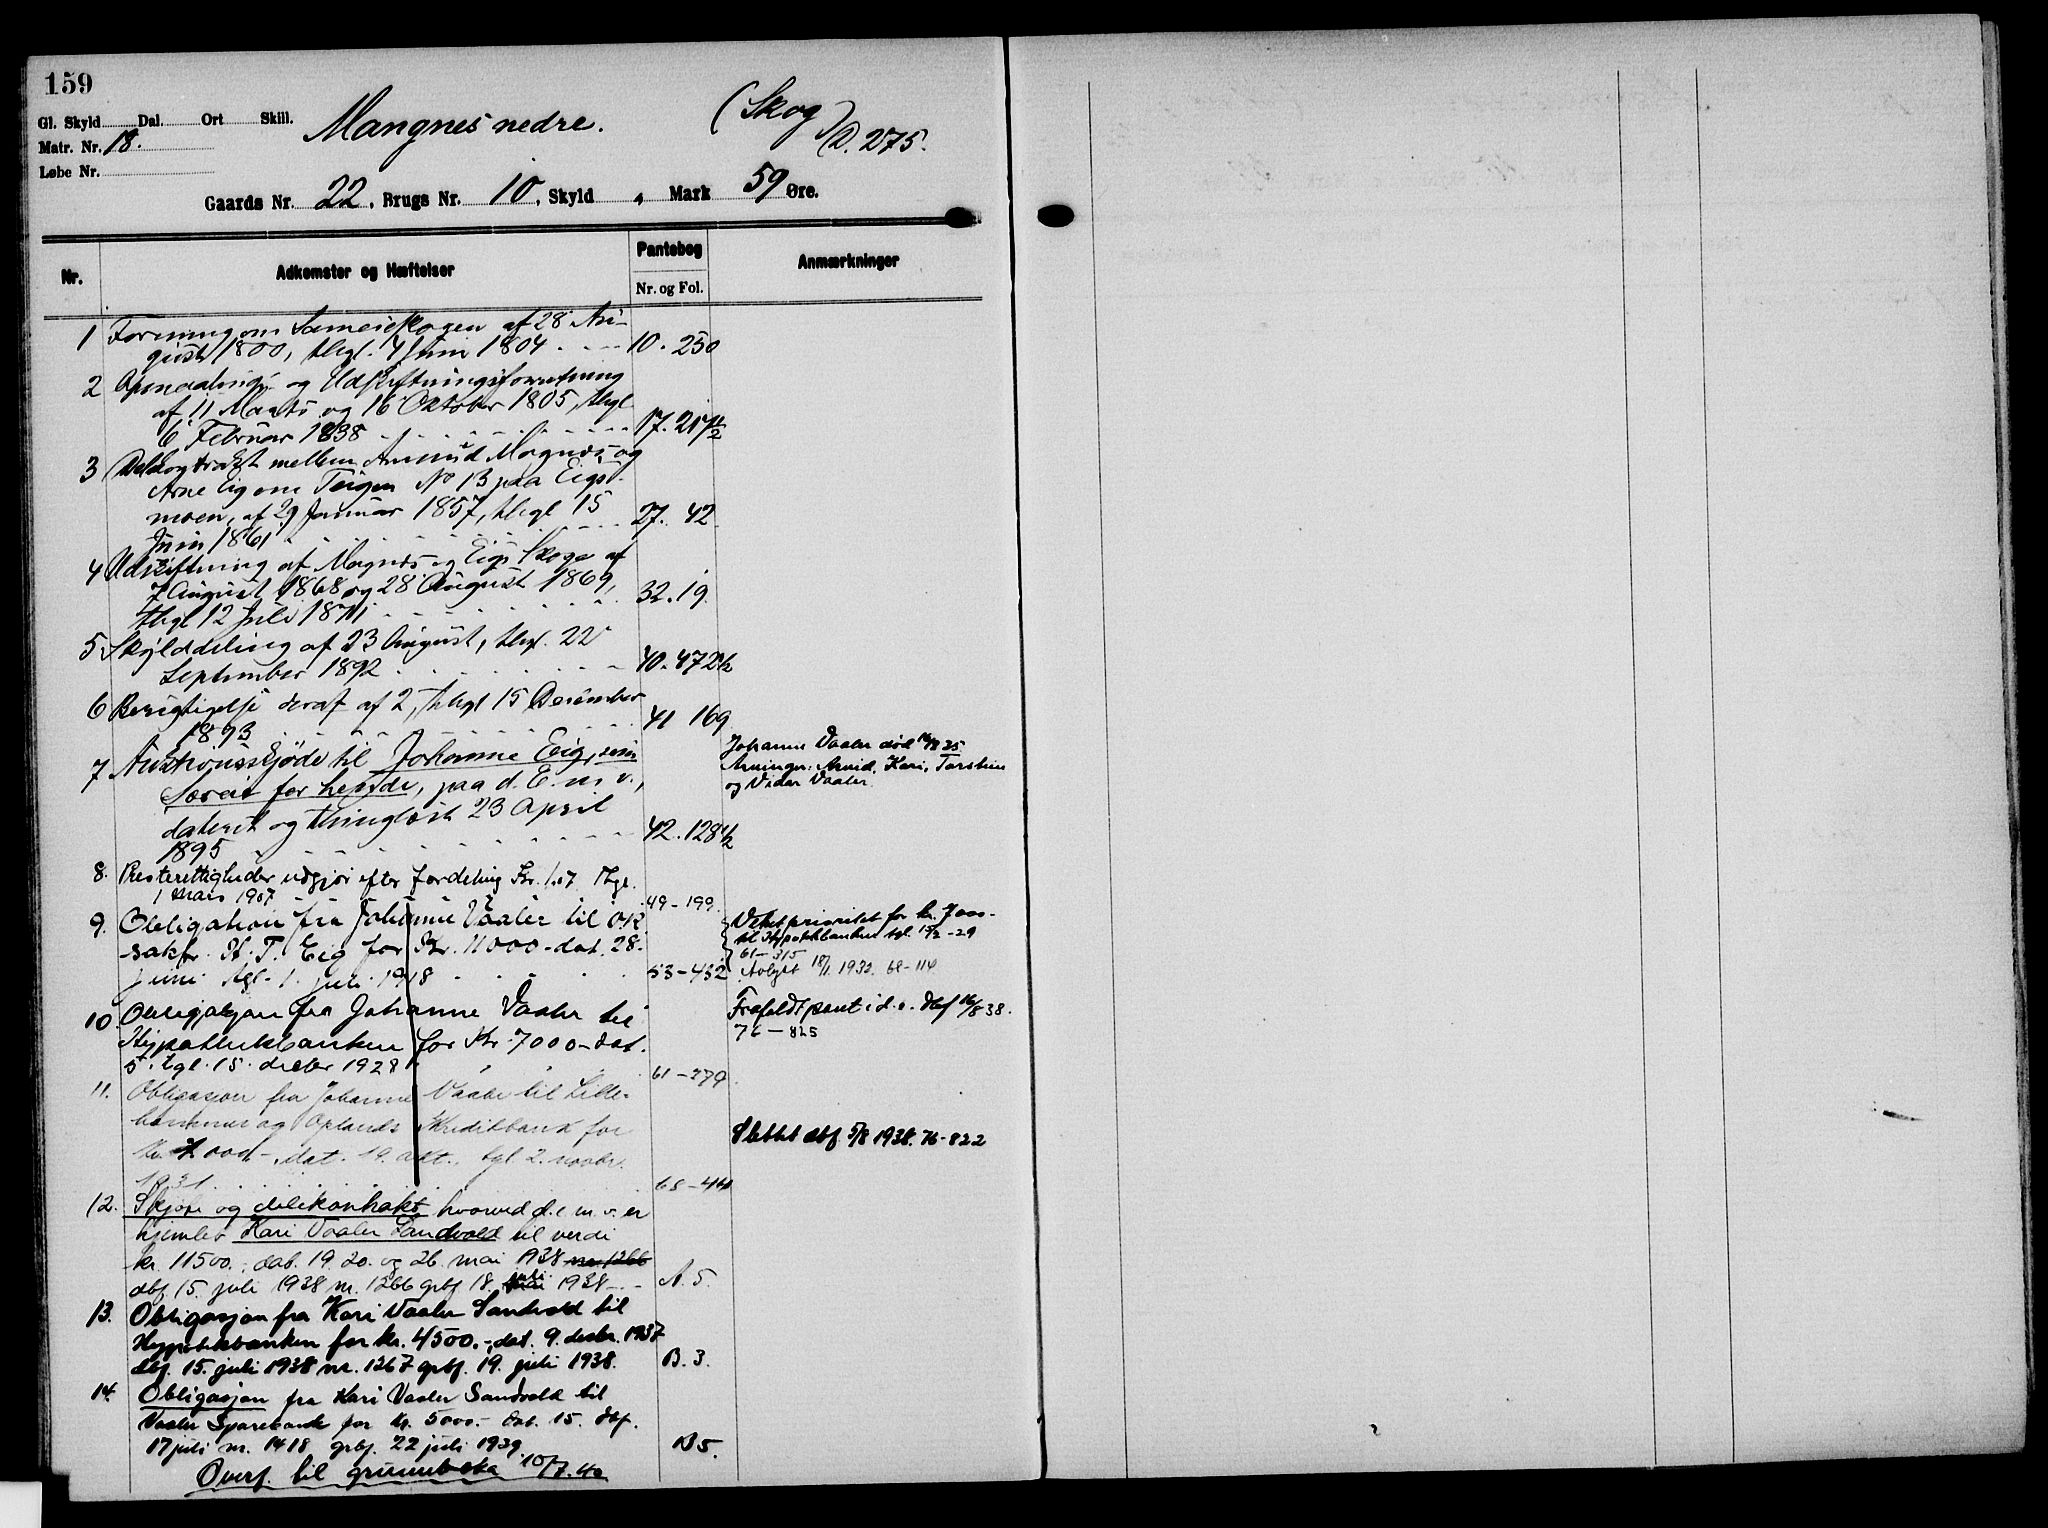 159
Gl. Skyld Dal. Ort Skill.
Mangnes nedre.
(Skog)
D. 275.
Matr. Nr. 18.
Løbe Nr.
Gaards Nr. 22, Brugs Nr. 10, Skyld , Mark 59 Øre.
Nr.
Adkomster og Hæftelser
Pantebog
Nr. og Fol.
Anmærkninger
1 Forening om Sameieskogen af 28 Au-
gust 1800, thgl. 4 Juni 1804 10. 250
2 og Udskiftningsforretning
af 11 Marts og 16 Oktober 1805, thgl
6 Februar 1838 17. 217 1/2
3 mellem Amund Magnæs og
Arne Eig om Teigen No 13 paa Eigs-
moen, af 29 Januar 1857, thgl 15
Juni 1861 27. 42
4 Udskiftning af Magnæs og Eigs Skoge af
7 August 1868 og 28 August 1869,
thgl 12 Juli 1871 32. 19
5 Skylddeling af 23 August, thgl. 22
September 1892 40. 472 1/2
6 Berigtigelse deraf af 2, thgl 15 December
1893 41 169
7 Auktionsskjøde til Johanne Eig, som
Særeie for hende, paa d. E. m. v.,
dateret og thinglæst 23 April
1895 42. 128 1/2
Johanne Vaaler død 35
Arvinger: Arvid, Kari, Torstein
og Vidar Vaaler.
8. Presterettigheder udgjør efter fordeling Kr. 1.07 Thgl.
1 mars 1907 49-199
9. Obligation fra Johanne Vaaler til O.R.
sakfr. H. T. Eig for Kr. 11000 - dat. 28.
juni tgl. 1. juli 1918 53-432
Veket prioritet for kr. 7000-
til Hypotekbanken tgl. 15/2-29
61-315
Avlyst 18/1 1932. 68-114
10. Obligasjon fra Johanne Vaaler til
Hypotekbanken for Kr. 7000 - dat.
5. tgl. 15. decbr 1928 61-279
Frafaldt pant i d. e. dbf 16/8 38.
76-825
11. Obligasjon fra Johanne Vaaler til Lille-
hammer og Oplands Kreditbank for
kr. 000 - dat. 19. okt., tgl. 2. novbr.
1931
Slettet dbf 5/8 1938. 76-822
12. Skjøte og delekontrakt hvorved d. e. m. v. er
hjemlet Kari Vaaler Sandvold til verdi
kr. 11500., dat. 19. 20. og 26. mai 1938 nr. 1266
dbf. 15. juli 1938 nr. 1266 grbf 18. mai juli 1938 A. 5.
13. Obligasjon fra Kari Vaaler Sandvold til
Hypotekbanken for kr. 4500.-, dat. 9. desbr. 1937
dbf. 15. juli 1938 nr. 1267 grbf. 19. juli 1938. B. 3.
14. Obligasjon fra Kari Vaaler Sandvold til
Vaaler Sparebank for kr. 5000.- dat. 15. dbf.
17 juli nr. 1418 grbf. 22 juli 1939 B 5.
Overf. til grunnboka 10/7.40